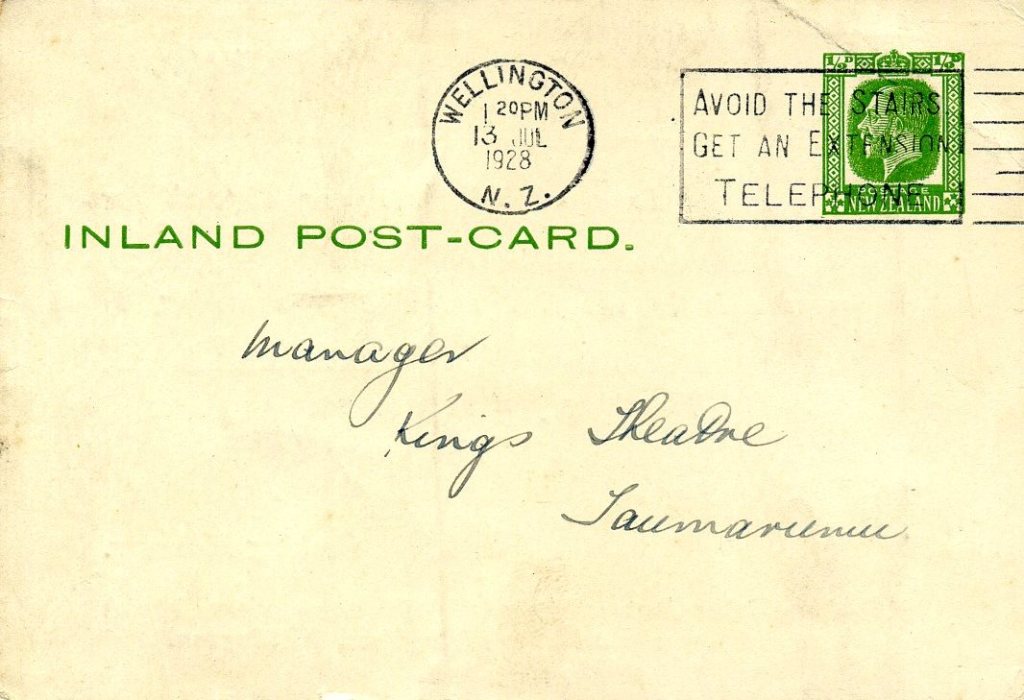 WELLINGTON
1 20 PM
13 JUL
1928
N. Z.
½D ½D
AVOID THE STAIRS
GET AN EXTENSION
TELEPHONE
POSTAGE
NEW ZEALAND
INLAND POST-CARD.
Manager
Kings Theatre
Taumarunui